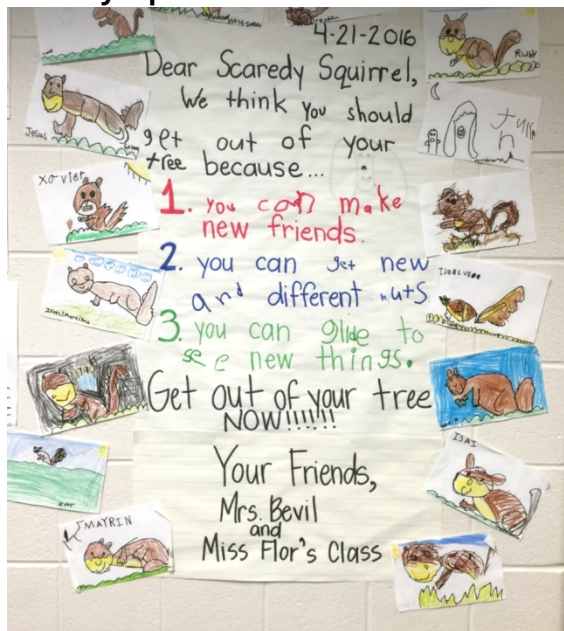 4-21-2016
Dear Scaredy Squirrel,
We think you should
get out of your
tree because...
1. you can make
new friends.
2. you can get new
and different nuts
3. you can glide to
see new things.
Get out of your tree
NOW!!!!!!
Your Friends,
Mrs. Bevil
and
Miss Flor's Class
Ruby
Jesus
Xavier
ISAI
MAYRIN